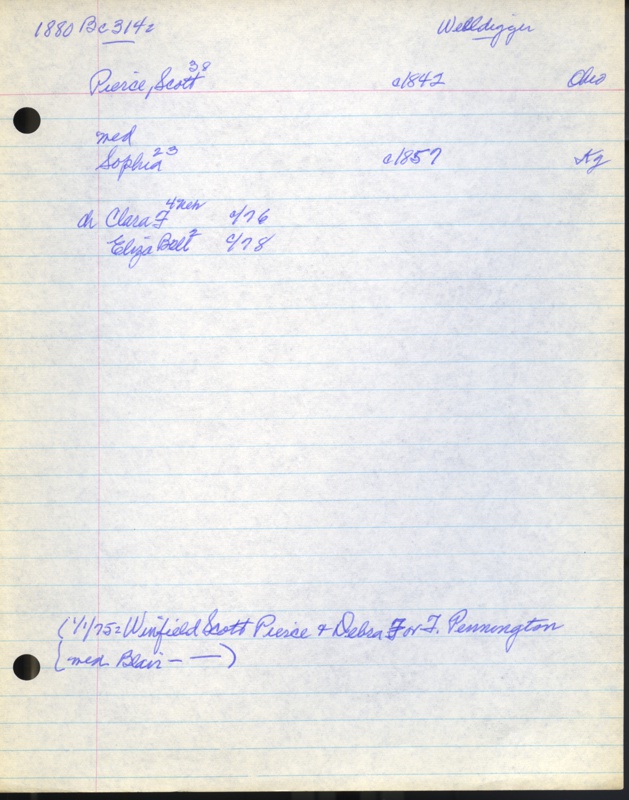 1880 Bc 314z Welldigger
Pierce, Scott 38 c1842 Ohio
med
Sophia 23 c1857 Ky
ch Clara F 4 Neb c/76
Eliza Bell 2 c/78
(1/1/75 = Winfield Scott Pierce & Debra F or T. Pennington
(med. Blair — —)